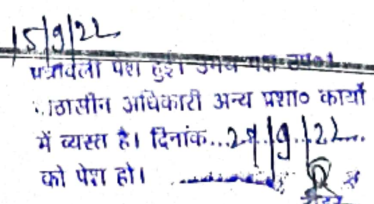 15/9/22
पत्रावली पेश हुई। उभय पक्ष उप०।
पीठासीन अधिकारी अन्य प्रशा० कार्यों
में व्यस्त है। दिनांक...29/9/22...
को पेश हो।